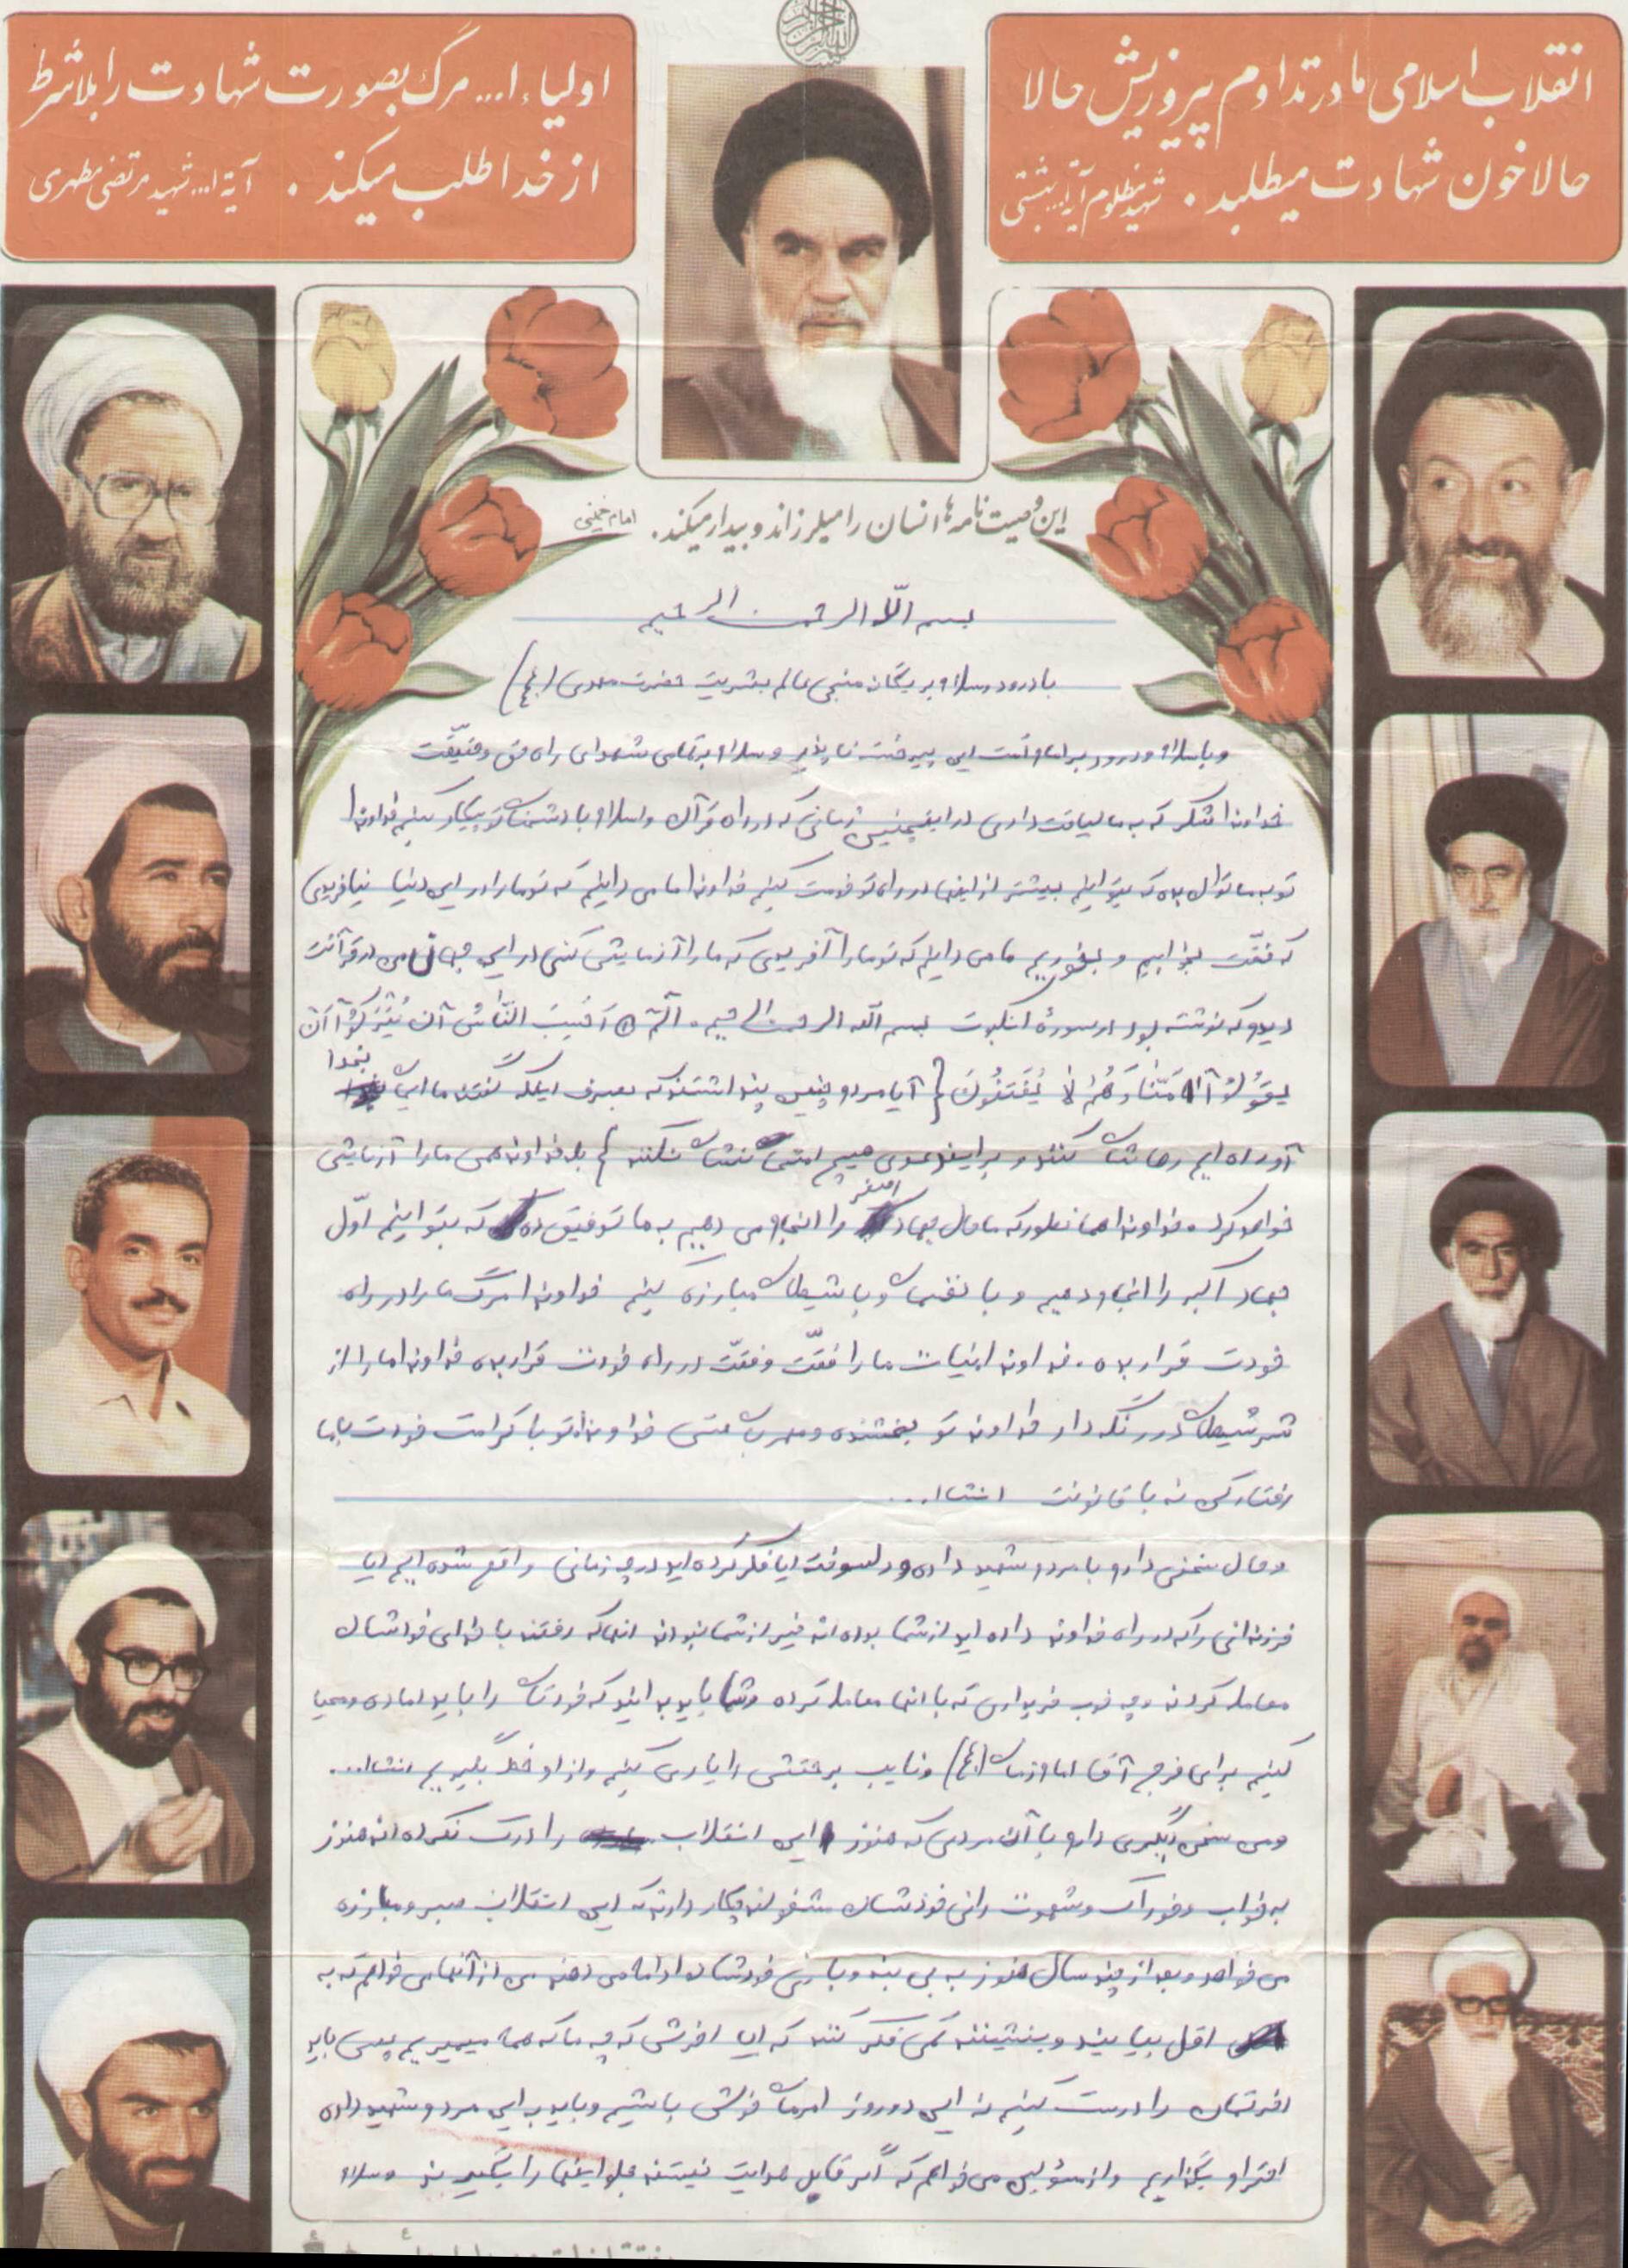 انقلاب اسلامی ما در تداوم پیروزیش حالا
حالا خون شهادت میطلبد . شهید مظلوم آیة ا... بهشتی
اولیاء ا... مرگ بصورت شهادت را بلاشرط
از خدا طلب میکند . آیة ا... شهید مرتضی مطهری
این وصیت نامه ها انسان را میلرزاند و بیدار میکند. امام خمینی
بسم اللّه الرحمن الرحیم
با درود و سلام بر یگانه منجی عالم بشریت حضرت مهدی (عج)
و با سلام و درود بر امام امت این پیر خستگی ناپذیر و سلام بر تمامی شهدای راه حق و حقیقت
خداوندا شکر که به ما لیاقت دادی در اینچنین زمانی که در راه قرآن و اسلام با دشمنان تو پیکار کنیم خداوندا
تو به ما توان بده که بتوانیم بیشتر از اینها در راه تو خدمت کنیم خداوندا ما می دانیم که تو ما را در این دنیا نیافریدی
که فقت بخوابیم و بخوریم ما می دانیم که تو ما را آفریدی که ما را آزمایش کنی در این جهان من در قرآنت
دیدم که نوشته بود در سورهٔ انکبوت بسم الله الرحمن الرحیم . الم ۞ اَحَسِبَ النّاسُ اَن یُتْرَکُوْآ اَنْ
یَقُوْلُوْآ اٰمَنّا وَ هُمْ لاٰ یُفْتَنُونَ { آیا مردم چنین پنداشتند که بصرف اینکه گفتند ما ایمان بخدا
آورده ایم رهاشان کنند و بر این دعوی هیچ امتحانشان نکنند } بله خداوند همی ما را آزمایش
خواهد کرد . خداوندا همانطور که ما حال جهاد اصغر را انجام می دهیم به ما توفیق ده که بتوانیم اوّل
جهاد اکبر را انجام دهیم و با نفسمان و با شیطان مبارزه کنیم خداوندا مرگ ما را در راه
خودت قرار بده . خداوندا نیات ما را فقت و فقت در راه خودت قرار بده خداوندا ما را از
شر شیطان دور نگه دار خداوند تو بخشنده و مهربان هستی خداوندا تو با کرامت خودت با ما
رفتار کن نه با قانونت انشاا...
و حال سخنی دارم با مردم شهید داده و دلسوخت آیا فکر کرده اید در چه زمانی واقع شده ایم ایا
فرزندانی را که در راه خداوند داده اید از شما بوده اند غیر از شما نبودند انها که رفتند با خدای خداشان
معامله کردند و چه خوب خریداری که با انها معامله کرده و شما باید بدانید که خودتان را باید اماده و مهیا
کنیم برای فرج آقا امام زمان (عج) و نایب بر حقش را یاری کنیم و از او خط بگیریم انشاا...
و من سخن دیگری دارم با آن مردمی که هنوز این انقلاب را درک نکرده اند هنوز
به خواب و خوراک و شهوت رانی خودشان مشغولند چکار دارند که این انقلاب صبر و مبارزه
می خواهد و بعد از چند سال هنوز به بی بند و باری خودشان ادامه می دهند من از آنها می خواهم که به
اقل بیایند و بنشینند کمی فکر کنند که ایا اخرش که چه ما که همه میمیریم پس باید
اخرتمان را درست کنیم نه این دو روز امرمان خوش باشیم و باید به این مردم شهید داده
احترام بگذاریم و از مسئولین می خواهم که اگر قابل هدایت نیستند جلو اینها را بگیرند و سلام